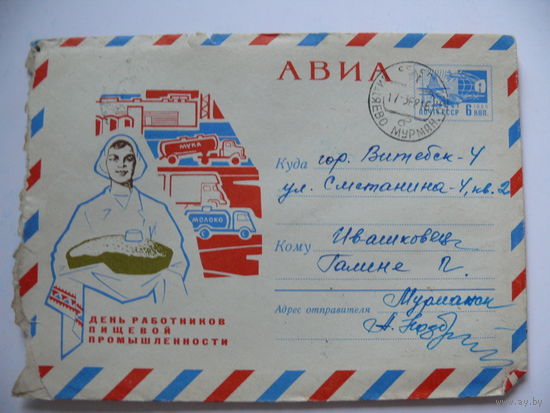 АВИА
ПОЧТА СССР
6 КОП.
МУКА
МОЛОКО
Куда гор. Витебск-4
ул. Сметанина-4, кв. 2
Кому Ивашковец
Галине П.
Адрес отправителя Мурманск
ДЕНЬ РАБОТНИКОВ
ПИЩЕВОЙ
ПРОМЫШЛЕННОСТИ
www.ay.by